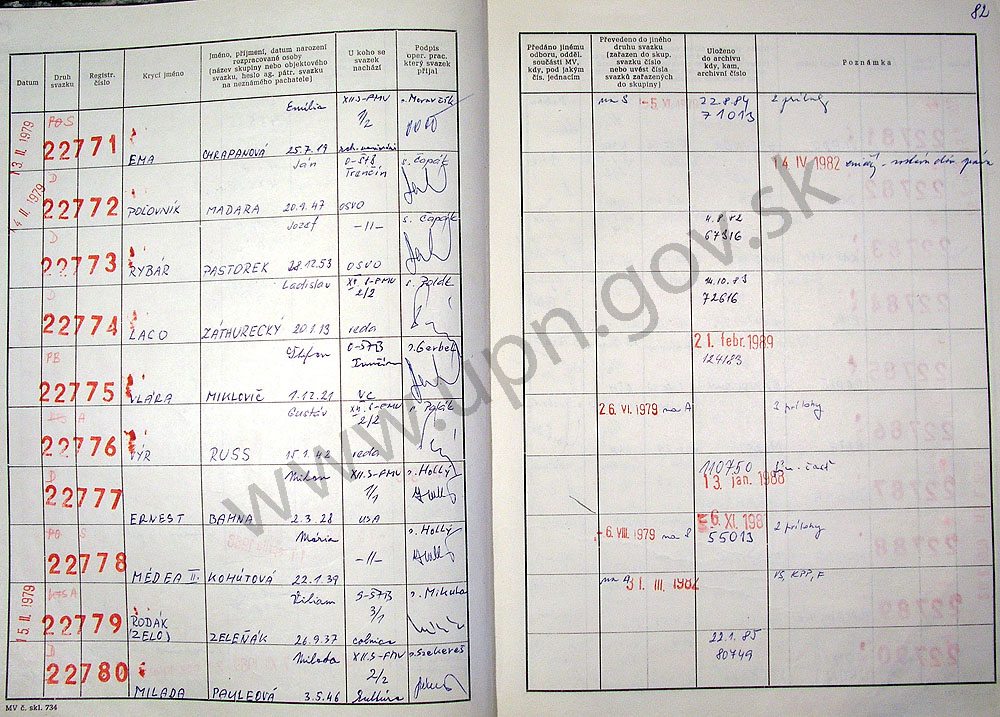 82
Datum
Druh svazku
Registr. číslo
Krycí jméno
Jméno, příjmení, datum narození
rozpracované osoby
(název skupiny nebo objektového
svazku, heslo ag. pátr. svazku
na neznámého pachatele)
U koho se
svazek
nachází
Podpis
oper. prac.
který svazek
přijal
Předáno jinému
odboru, odděl.
součásti MV,
kdy, pod jakým
čís. jednacím
Převedeno do jiného
druhu svazku
(zařazen do skup.
svazku číslo
nebo uvést čísla
svazků zařazených
do skupiny)
Uloženo
do archivu
kdy, kam,
archivní číslo
Poznámka
13 II. 1979
S
22771
EMA
Emília
CHRAPANOVÁ 25.7.19
XII.S-FMV
1/2
na S
22.8.84
71013
2 přílohy
14 II. 1979
D
22772
POĽOVNÍK
Ján
MADARA 20.9.47
Trenčín
OSVO
s. Čapák
14. IV. 1982
D
22773
RYBÁR
Jozef
PASTOREK 28.12.53
-11-
OSVO
s. Čapák
4.8.82
67316
D
22774
LACO
Ladislav
ZÁTHURECKÝ 20.1.13
2/2
reda
14.10.83
72616
PB
22775
KLÁRA
Štefan
MIKLOVIČ 1.12.21
VC
s. Gerbel
21. febr. 1989
124183
A
22776
VÝR
Gustáv
RUSS 15.1.42
2/2
reda
s. Polák
26. VI. 1979 na A
3 přílohy
D
22777
ERNEST
Milan
BAHNA 2.3.28
XII.S-FMV
1/1
USA
s. Hollý
110750
13. jan. 1988
PO S
22778
MÉDEA II.
Mária
KOHÚTOVÁ 22.1.39
-11-
s. Hollý
-6. VIII. 1979 na S
6. XI. 198
55013
2 přílohy
15 II. 1979
A
22779
RODÁK
(ZELO)
Viliam
ZELEŇÁK 26.9.37
3/1
colnica
s. Mikula
na A
31. III. 1982
VS, KPP, F
D
22780
MILADA
Milada
PAULEOVÁ 3.5.46
XII.S-FMV
2/2
kultúra
s. Szekereš
22.1.85
80749
MV č. skl. 734
www.upn.gov.sk